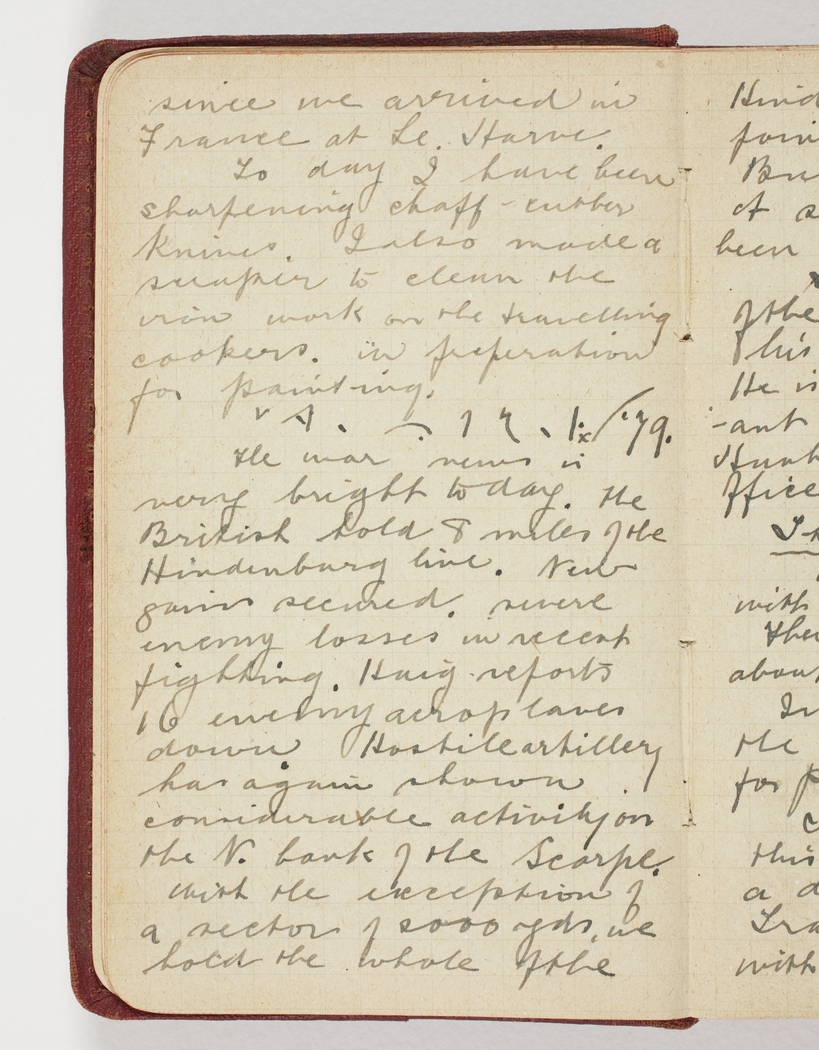 since we arrived in
France at Le. Harve.
To day I have been
sharpening chaff-cutter
knives. I also made a
scraper to clean the
iron work on the travelling
cookers. in preperation
for painting.
The war news is
very bright today. The
British hold 8 miles of the
Hindenburg line. New
gains secured. severe
enemy losses in recent
fighting. Haig reports
16 enemy aeroplanes
down Hostile artillery
has again shown
considerable activity on
the N. bank of the Scarpe.
with the exception of
a sector of 2000 yds, we
hold the whole of the
Hind
of s
been
of the
This
He is
-ant
Office
with
about
the
for
this
a d
with